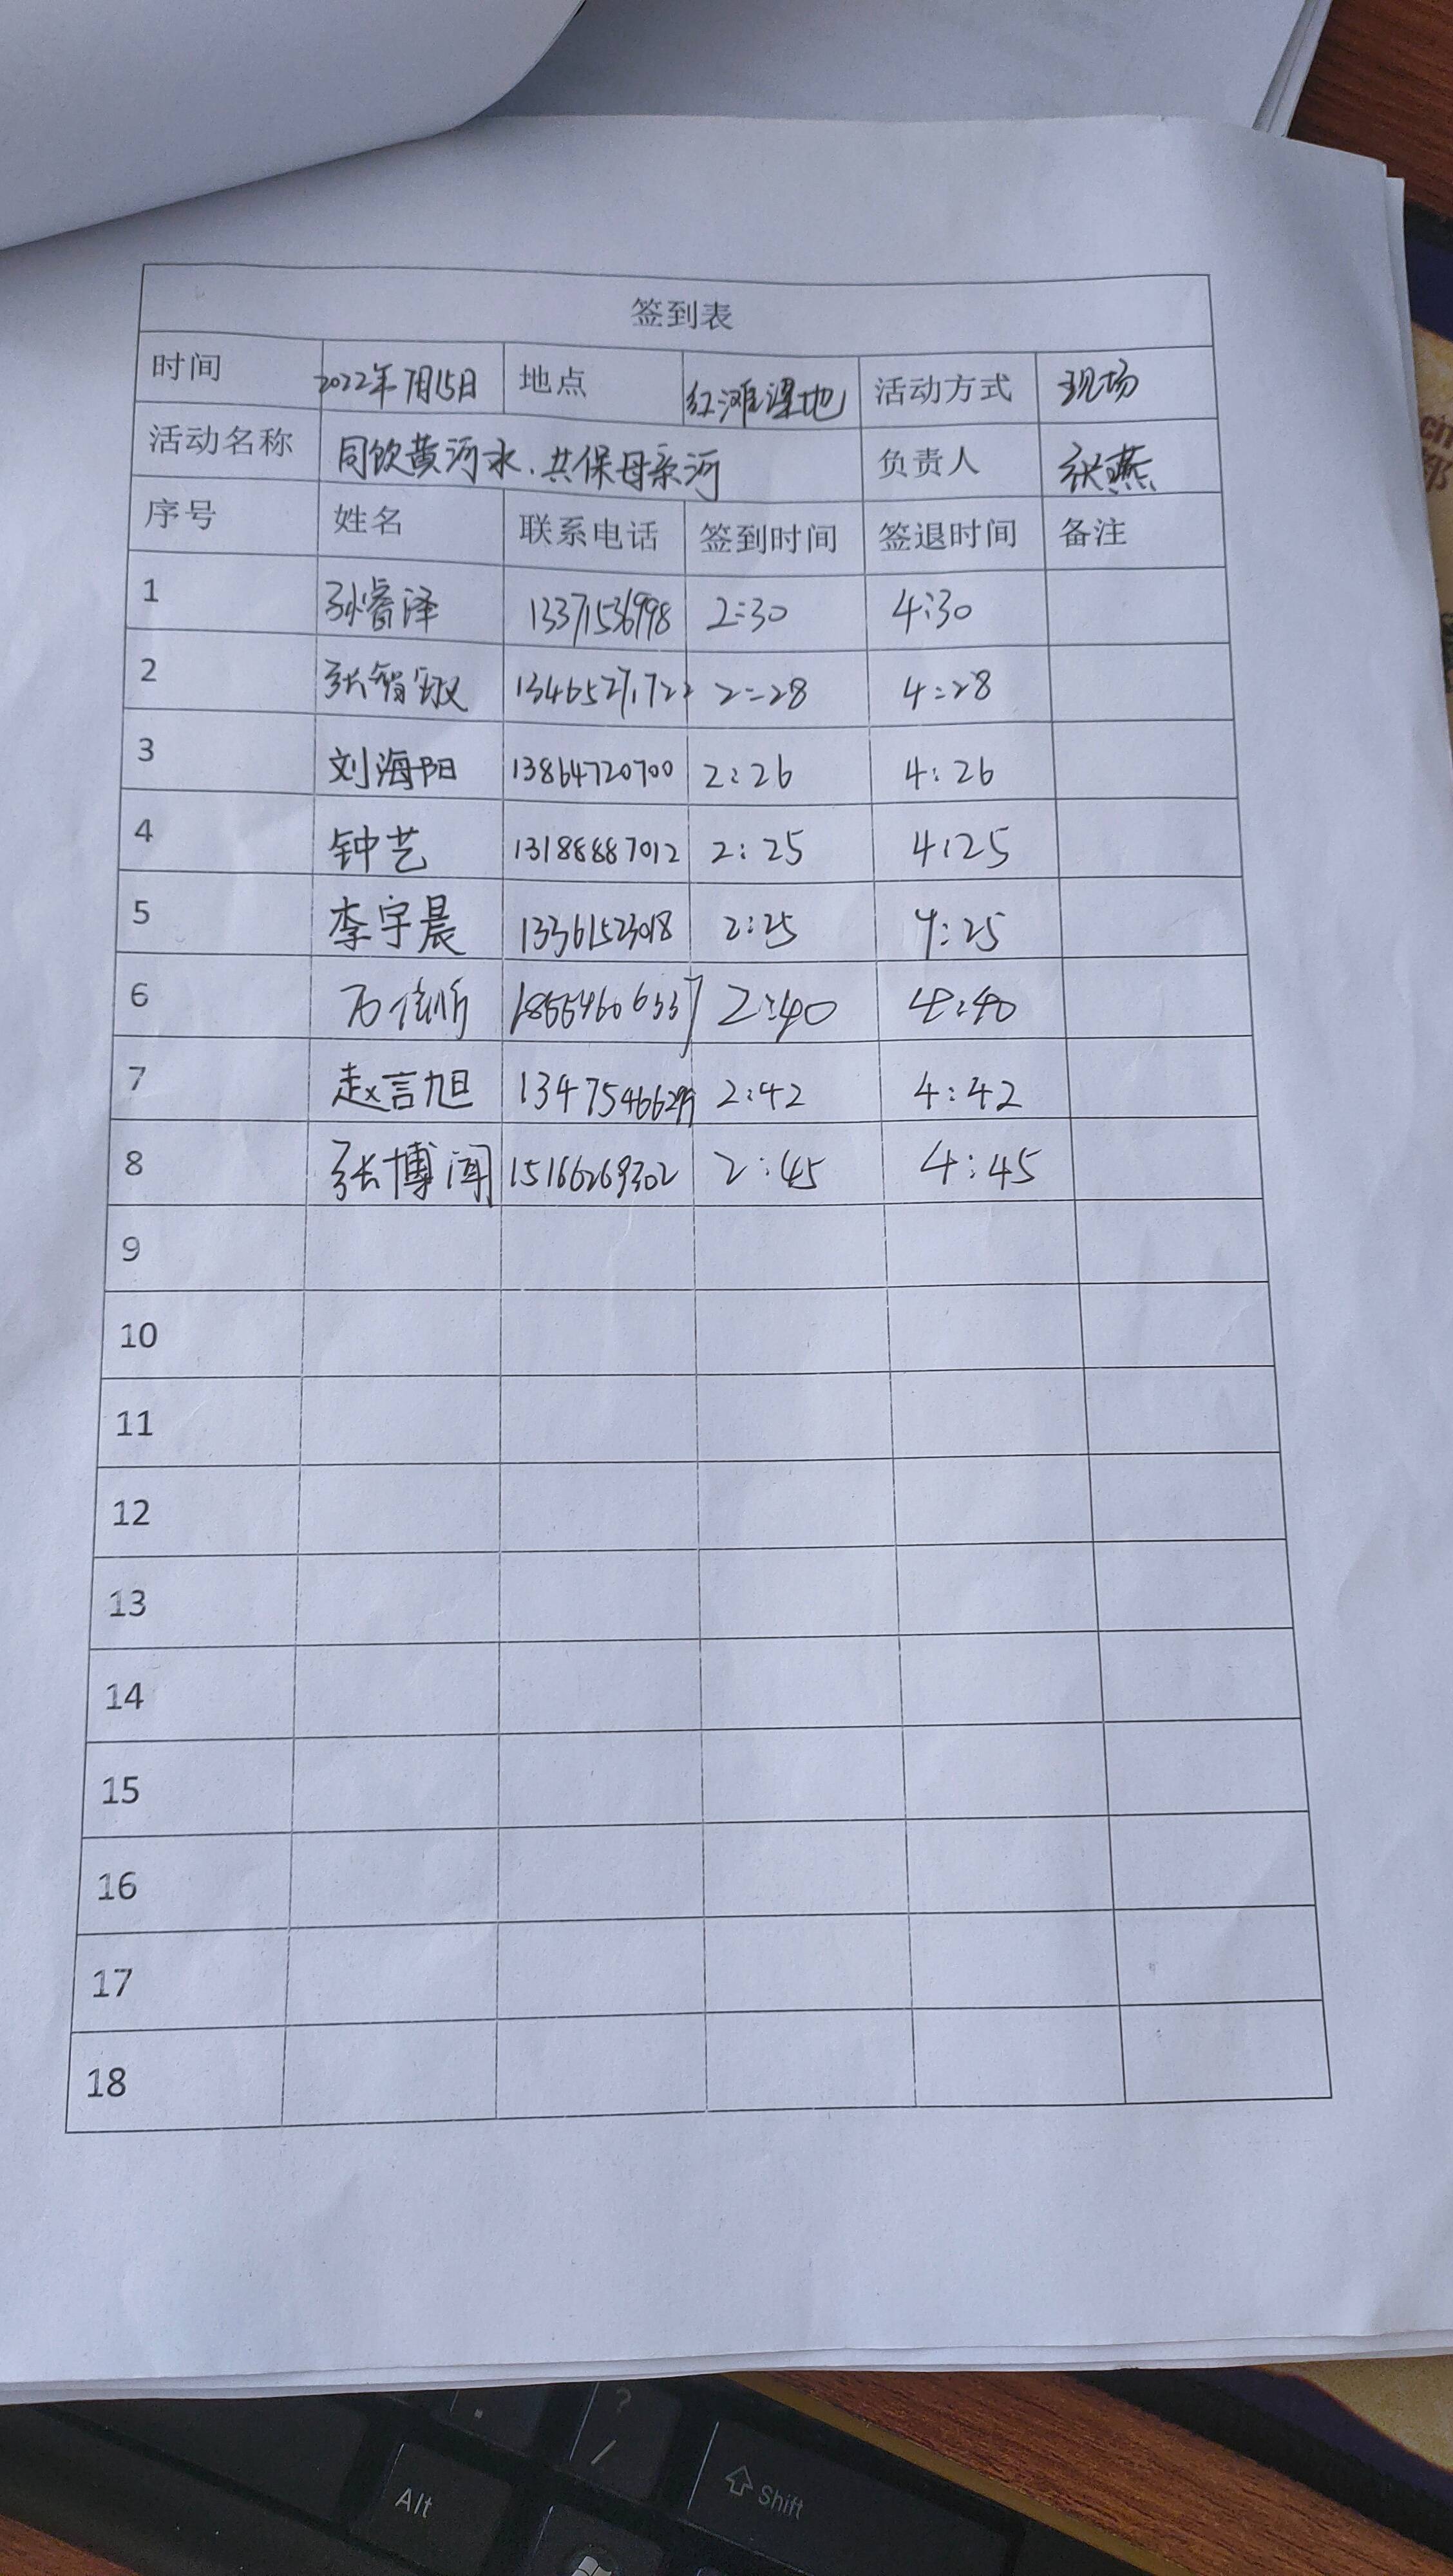 签到表
时间 2022年7月15日 地点 红滩湿地 活动方式 现场
活动名称 同饮黄河水、共保母亲河 负责人 张燕
序号 姓名 联系电话 签到时间 签退时间 备注
1 孙睿泽 13371536998 2:30 4:30
2 2:28 4:28
3 刘海阳 13864720700 2:26 4:26
4 钟艺 13188887012 2:25 4:25
5 李宇晨 13361523018 2:25 4:25
6 2:40 4:40
7 赵言旭 2:42 4:42
8 张博闻 15166269302 2:45 4:45
9
10
11
12
13
14
15
16
17
18
?
/
Alt
Shift